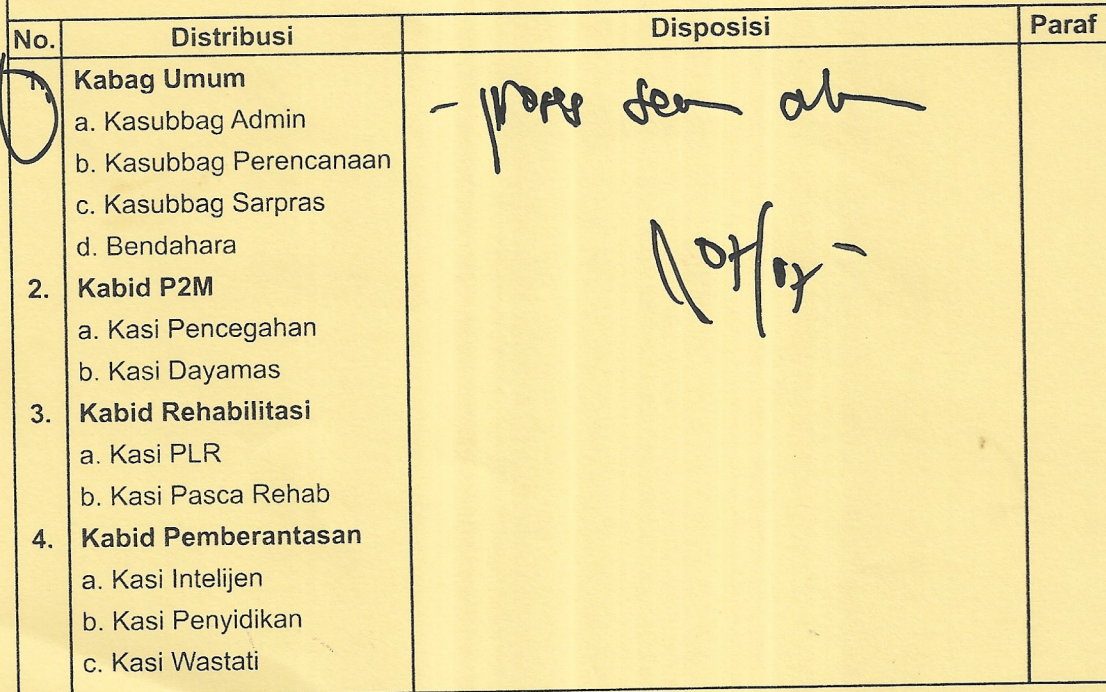 No. Distribusi Disposisi Paraf
1. Kabag Umum
a. Kasubbag Admin
b. Kasubbag Perencanaan
c. Kasubbag Sarpras
d. Bendahara
2. Kabid P2M
a. Kasi Pencegahan
b. Kasi Dayamas
3. Kabid Rehabilitasi
a. Kasi PLR
b. Kasi Pasca Rehab
4. Kabid Pemberantasan
a. Kasi Intelijen
b. Kasi Penyidikan
c. Kasi Wastati
- proses
07/07